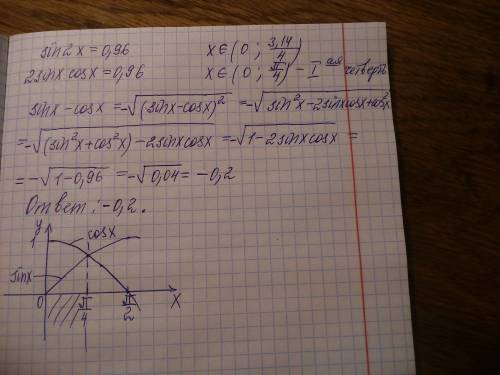 sin2x = 0,96    x∈(0; 3,14/4)
2sinx cosx = 0,96    x∈(0; π/4) - I ая четверть
sinx - cosx = -√(sinx-cosx)² = -√sin²x-2sinxcosx+cos²x
= -√(sin²x+cos²x)-2sinxcosx = -√1-2sinxcosx =
= -√1-0,96 = -√0,04 = -0,2
Ответ: -0,2.
y
1 cosx
sinx
0 π/4 π/2 x